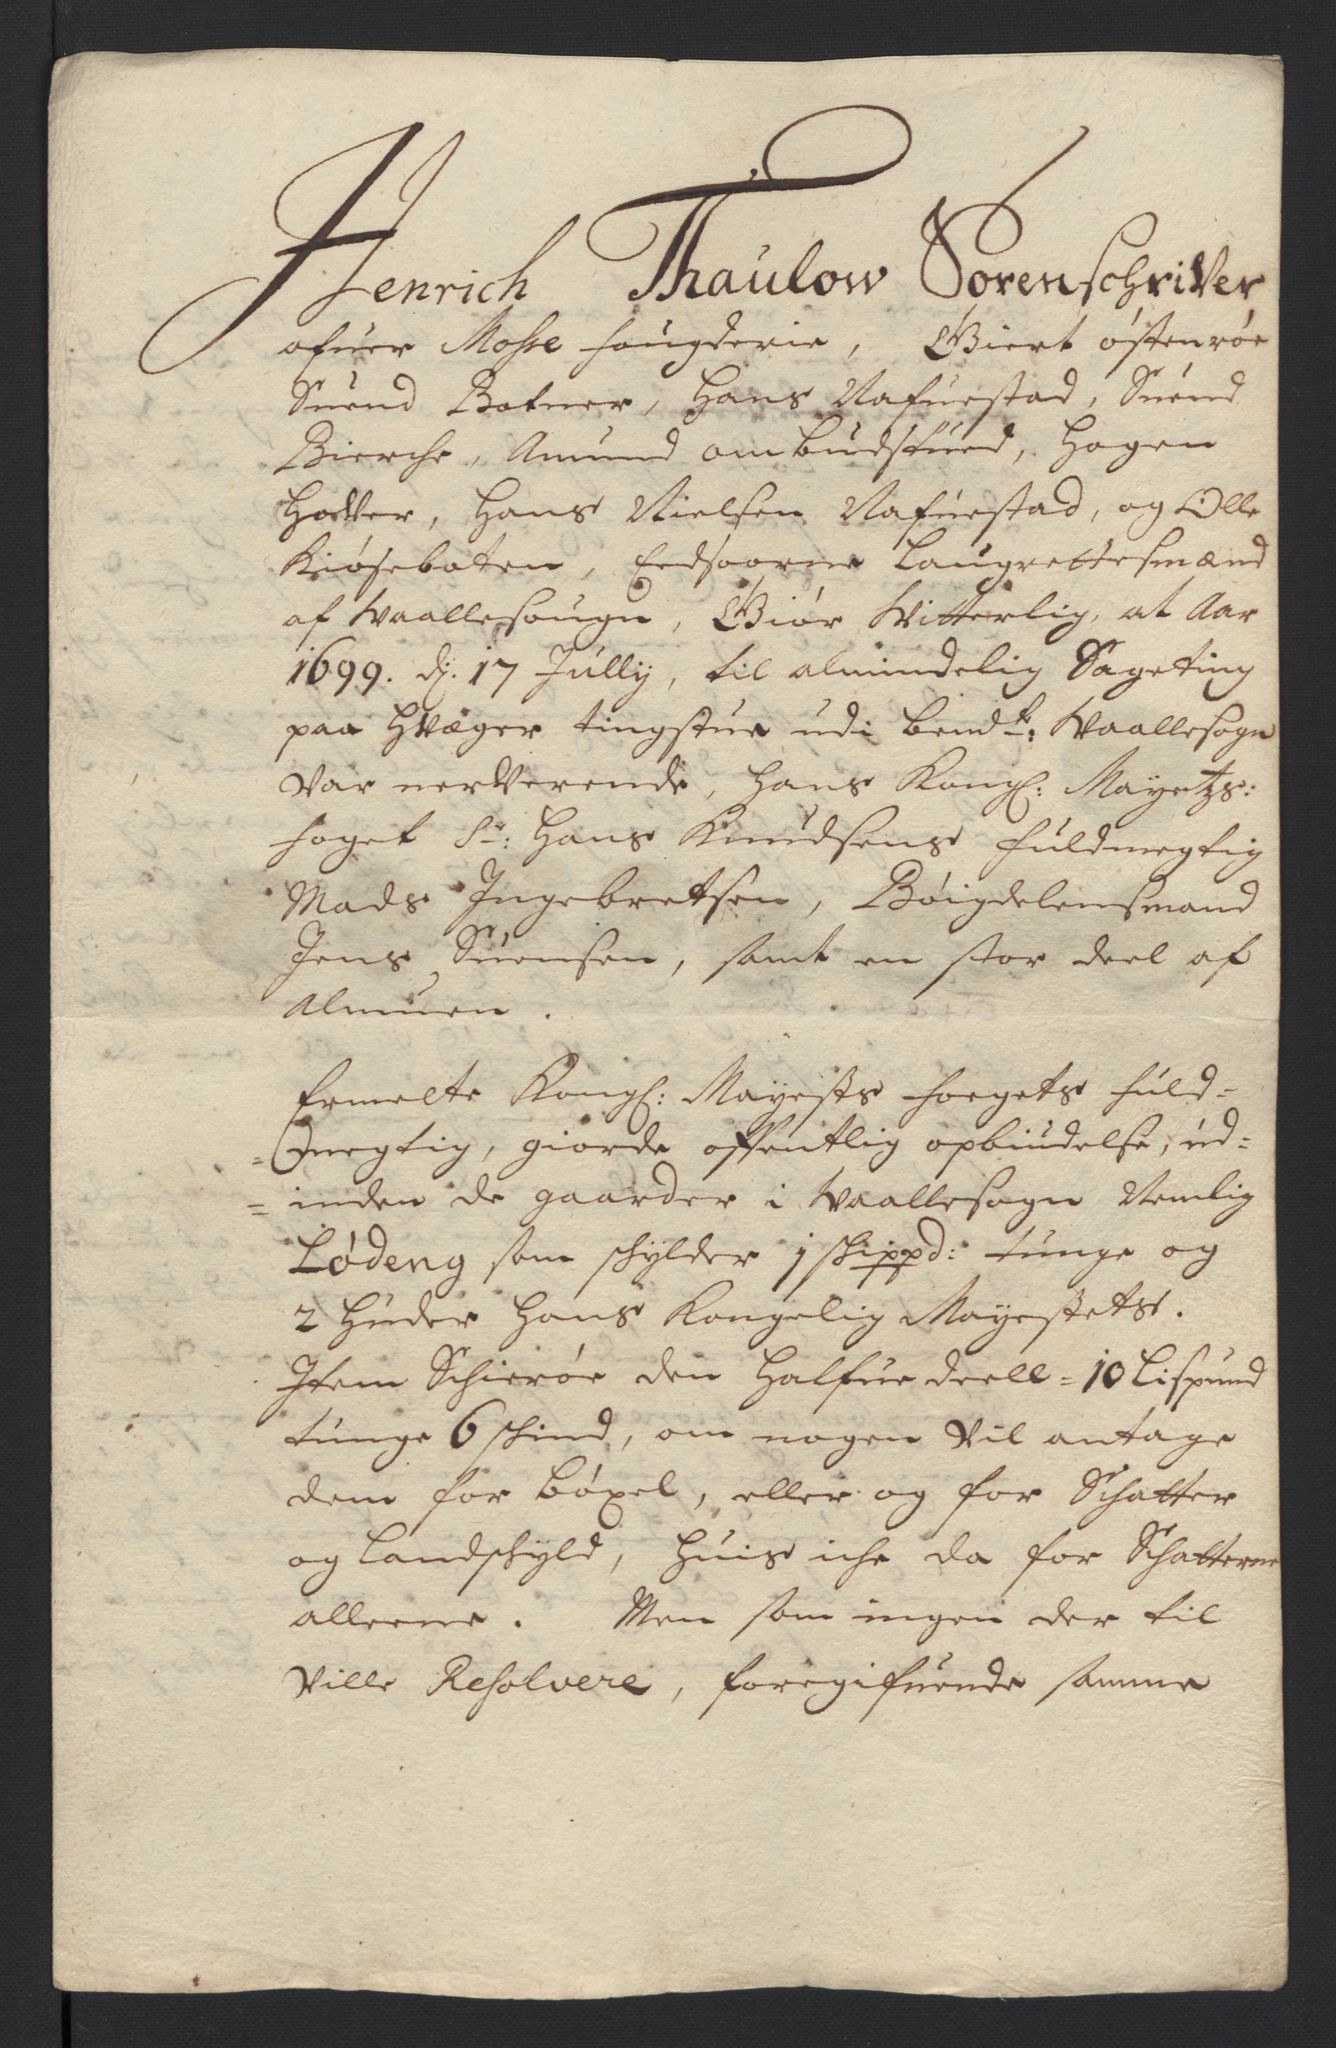 Henrich Thaulow Sorenschriver
ofuer Mosse fougderie, Giert østenrøe
Suend Botner, Hans Rafuestad, Suend
Bierche, Amund ombudstued, Hagen
Hofver, Hans Nielsen Rafuestad, og Olle
Kiøsebaten, Eedsoorne Laugrettesmænd
af Waallesougn, Giør Witterlig, at Aar
1699. dj. 17 Jullij, til almindelig Sageting
paa Hvæger tingstue udi bemdte: Waallesogn
var nerverende, Hans Kongl: Mayetzs:
foget Sr: Hans Knudsens fuldmegtig
Mads Ingebretsen, Bøigdelensmand
Jens Suensen, samt en stor deel af
Almuen.
Ermelte Kongl: Mayests foegets fuld=
=megtig, giorde offentlig opbiudelse, ud=
=inden de gaarder i Waallesogn Nemlig
Lødeng som schylder 1 schippd: tunge og
2 Huder Hans Kongelig Mayestets.
Item Schierøe den Halfue deell = 10 Lispund
tunge 6 schind, om nogen vil antage
dem for bøxel, eller og for Schatter
og Landschyld, Huis iche da for Schatterne
alleene. Men som ingen der til
ville Resolvere, foregifuende samme